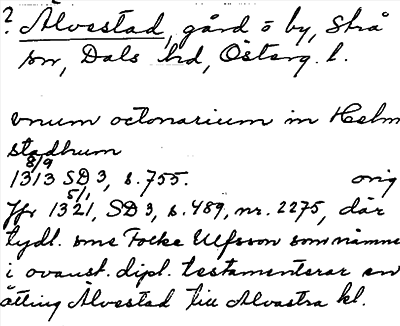 ? Älvestad, gård o by, Strå
sn, Dals hd, Österg. l.
vnum octonarium in Helm
stadhum
8/9
1313 SD 3, s. 755. orig
5/1
Jfr 1321, SD 3, s. 489, nr. 2275, där
tydl. sme Focke Ulfsson som nämne
i ovanst. dipl. testamenterar en
åtting Älvestad till Alvastra kl.